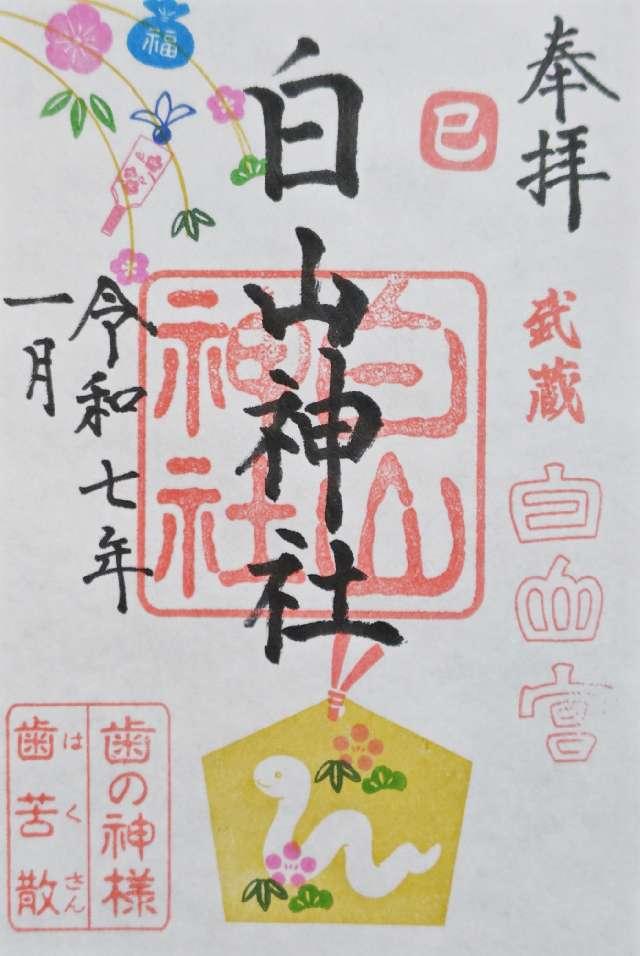 奉拝
巳
武蔵
白山宮
白山神社
白山
神社
令和七年
一月
福
歯の神様
歯苦散
はくさん